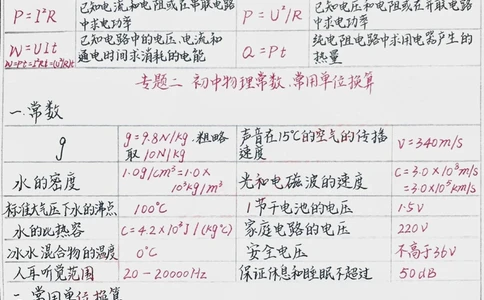 P=I²R
已知电流和电阻或在串联电路
中求电功率
P=U²/R
已知电压和电阻或在并联电路
中求电功率
W=UIt
W=Pt=I²Rt=(U²/R)t
已知电路中的电压、电流和
通电时间求消耗的电能
Q=Pt
纯电阻电路中求用电器产生的
热量
专题二 初中物理常数、常用单位换算
一.常数
g
g=9.8N/kg.粗略
取10N/kg
声音在15℃的空气的传播
速度
V=340m/s
水的密度
1.0g/cm³=1.0×
10³kg/m³
光和电磁波的速度
C=3.0×10⁸m/s
=3.0×10⁵km/s
标准大气压下水的沸点
100℃
1节干电池的电压
1.5V
水的比热容
C=4.2×10³J/(kg℃)
家庭电路的电压
220V
冰水混合物的温度
0℃
安全电压
不高于36V
人耳听觉范围
20-20000Hz
保证休息和睡眠不超过
50dB
二.常用单位换算